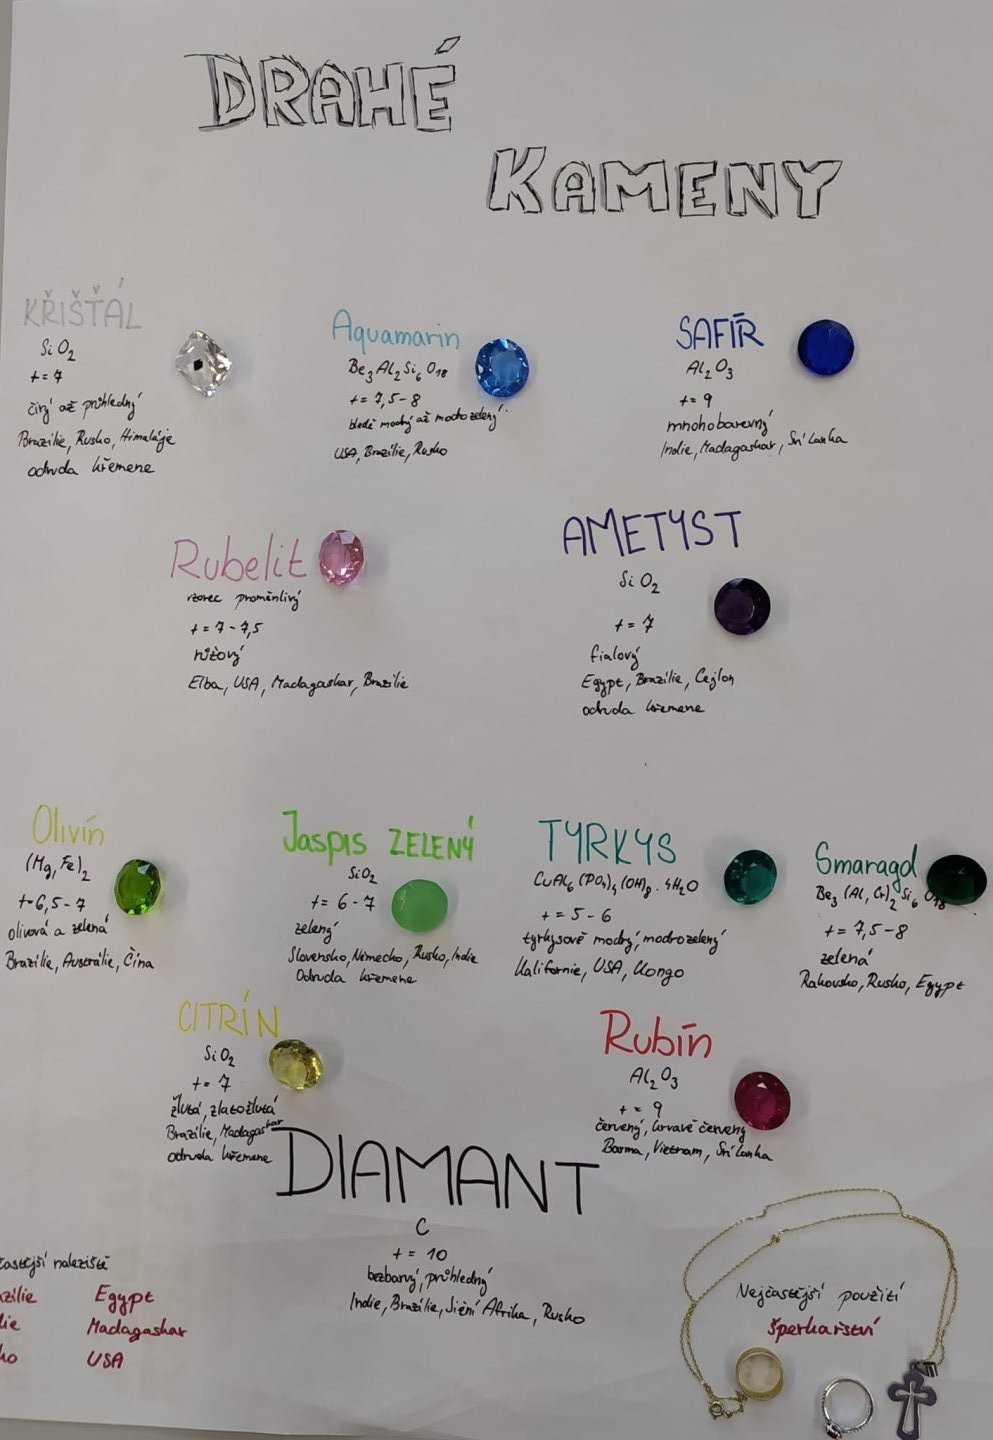 DRAHÉ
KAMENY
KŘIŠŤÁL
SiO₂
t = 7
čirý až průhledný
Brazílie, Rusko, Himaláje
odruda křemene
Aquamarin
Be₃Al₂Si₆O₁₈
t = 7,5-8
bledě modrý až modrozelený
USA, Brazílie, Rusko
SAFÍR
Al₂O₃
t = 9
mnohobarevný
Indie, Madagaskar, Srí Lanka
Rubelit
vzorec proměnlivý
t = 7-7,5
růžový
Elba, USA, Madagaskar, Brazílie
AMETYST
SiO₂
t = 7
fialový
Egypt, Brazílie, Cejlon
odruda křemene
Olivín
(Mg,Fe)₂
t-6,5-7
olivová a zelená
Brazílie, Austrálie, Čína
Jaspis ZELENÝ
SiO₂
t = 6-7
zelený
Slovensko, Německo, Rusko, Indie
Odruda křemene
TYRKYS
CuAl₆(PO₄)₄(OH)₈·4H₂O
t = 5-6
tyrkysově modrý, modrozelený
Kalifornie, USA, Kongo
Smaragd
Be₃(Al,Cr)₂Si₆O₁₈
t = 7,5-8
zelená
Rakousko, Rusko, Egypt
CITRÍN
SiO₂
t = 7
žlutá, zlatožlutá
Brazílie, Madagaskar
odruda křemene
Rubín
Al₂O₃
t = 9
červený, krvavě červený
Barma, Vietnam, Srí Lanka
DIAMANT
C
t = 10
bezbarvý, průhledný
Indie, Brazílie, Jižní Afrika, Rusko
častější naleziště
azílie Egypt
die Madagaskar
ko USA
Nejčastější použití
šperkařství